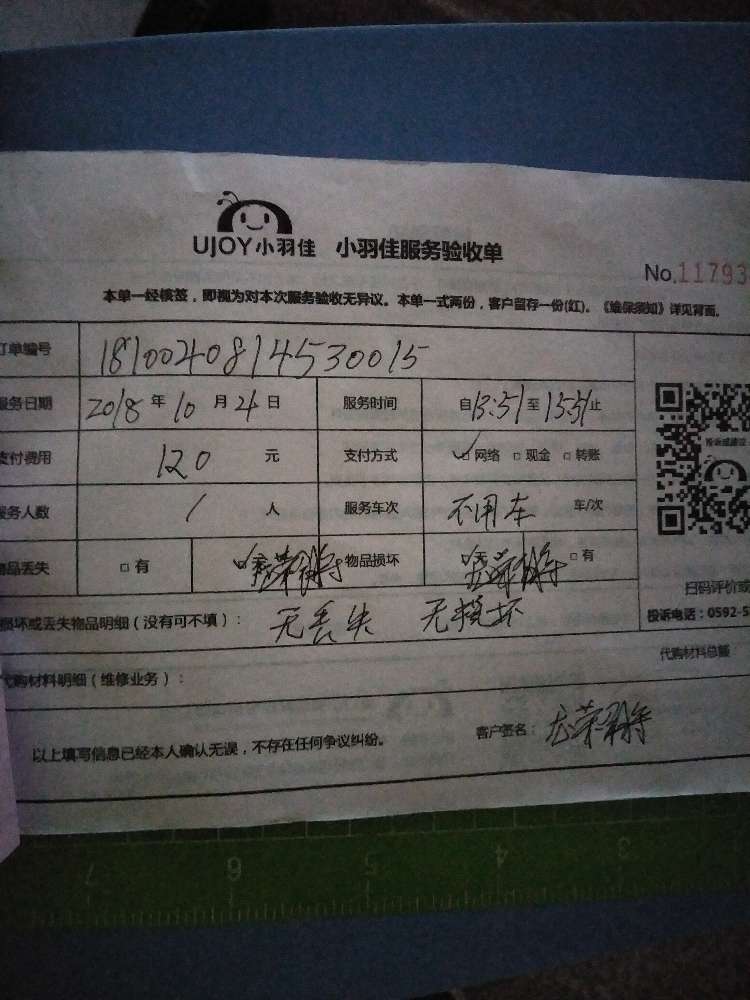 UJOY小羽佳 小羽佳服务验收单
No.11793
本单一经核签，即视为对本次服务验收无异议。本单一式两份，客户留存一份(红)。《维保须知》详见背面。
订单编号 1810040814530015
服务日期 2018年10月24日 服务时间 自13:51至15:51止
支付费用 120元 支付方式 ☑网络 □现金 □转账
投诉或建议
服务人数 1人 服务车次 不用车 车/次
物品丢失 □有 物品损坏 □有
扫码评价或
损坏或丢失物品明细（没有可不填）： 无丢失 无损坏
投诉电话：0592-5
代购材料总额
代购材料明细（维修业务）：
以上填写信息已经本人确认无误，不存在任何争议纠纷。 客户签名：
7 6 5 4 3